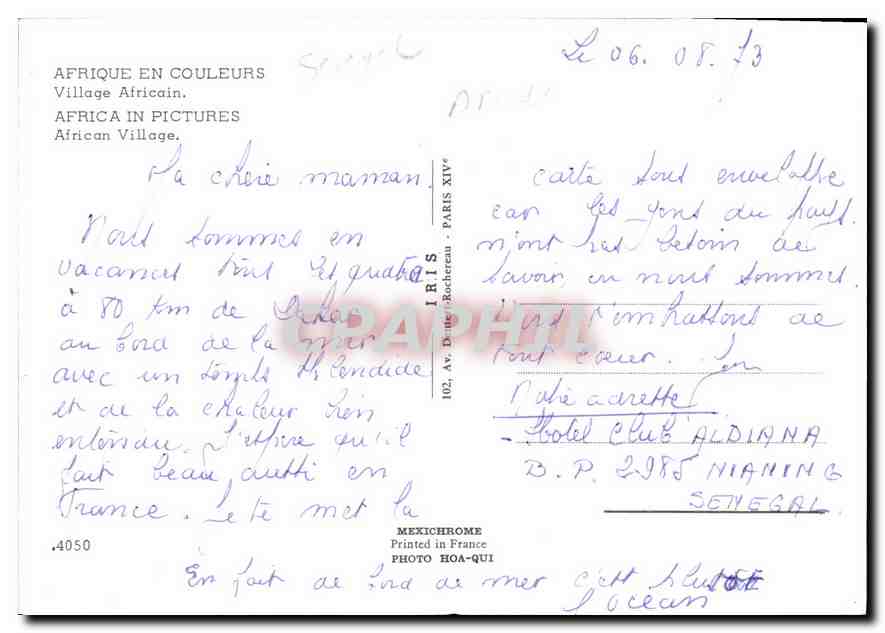 Le 06. 08. 73
AFRIQUE EN COULEURS
Village Africain.
AFRICA IN PICTURES
African Village.
Ma chère maman.
Nous sommes en
vacances tous les quatre
à 80 km de Dakar
au bord de la mer
avec un temps splendide
et de la chaleur bien
entendu. J'espère qu'il
fait beau aussi en
France. Je te met la
IRIS
102, Av. Denfert-Rochereau - PARIS XIVe
carte sous enveloppe
car les gens du pays.
n'ont pas besoin de
savoir, où nous sommes.
t'embrassons de
tout coeur.
Notre adresse
- Hotel Club ALDIANA
B. P. 2985 NIANING
SENEGAL
CPAPHIL
.4050
MEXICHROME
Printed in France
PHOTO HOA-QUI
En fait de bord de mer c'est plutot
l'ocean